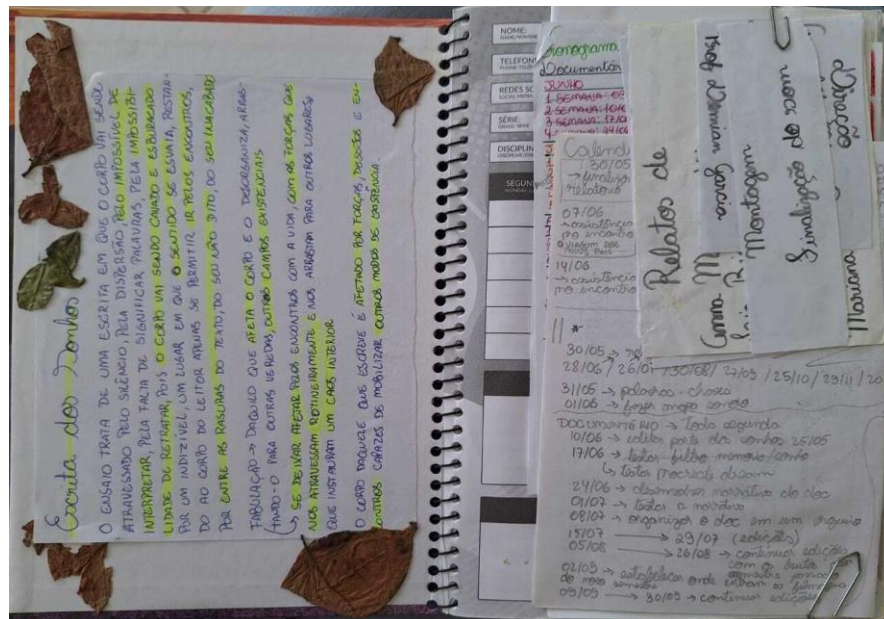 Escrita dos Sonhos
O ENSAIO TRATA DE UMA ESCRITA EM QUE O CORPO VAI SENDO
ATRAVESSADO PELO SILÊNCIO, PELA DISPERSÃO, PELO IMPOSSÍVEL DE
INTERPRETAR, PELA FALTA DE SIGNIFICAR PALAVRAS, PELA IMPOSSIBI-
LIDADE DE RETRATAR, POIS O CORPO VAI SENDO CAVADO E ESBURACADO
POR UM INDIZÍVEL, UM LUGAR EM QUE O SENTIDO SE ESVAIA, RESTAN-
DO AO CORPO DO LEITOR APENAS SE PERMITIR IR PELOS ENCONTROS,
POR ENTRE AS RASURAS DO TEXTO, DO SEU NÃO DITO, DO SEU INACABADO
FABULAÇÃO → DAQUILO QUE AFETA O CORPO E O DESORGANIZA, ARRAS-
TANDO-O PARA OUTRAS VEREDAS, OUTROS CAMPOS EXISTENCIAIS
↳ SE DEIXAR AFETAR PELOS ENCONTROS COM A VIDA, COM AS FORÇAS QUE
NOS ATRAVESSAM ROTINEIRAMENTE E NOS ARRASTAM PARA OUTROS LUGARES,
QUE INSTAURAM UM CAOS INTERIOR
O CORPO DAQUELE QUE ESCREVE É AFETADO POR FORÇAS, DESEJOS E EN-
CONTROS CAPAZES DE MOBILIZAR OUTROS MODOS DE EXISTÊNCIA.
NOME:
TELEFON
REDES SO
SÉRIE:
DISCIPLIN
SEGUN
Cronograma
Documentos
JUNHO
1 SEMANA:
2 SEMANA: 10/06
3 SEMANA: 17/0
Calend
30/05
→ finalizar
relatório
07/06
→ assistência
pro encontro
14/06
→ assistência
pro encontro
Relatos de
Garcia
Montagem
Sinalização do MACC
Mariana
Duração
*
30/05 →
28/06 / 26/07 / 30/08 / 27/09 / 25/10 / 29/11 / 20
31/05 →
01/06 → fazer mapa
DOCUMENTÁRIO → Toda segunda
10/06 → editar parte dos sonhos 25/05
17/06 → testar filtro
↳ testar procreate dream
24/06 → desenvolver narrativa do doc
01/07 → testar a narrativa
08/07 → organizar o doc em um arquivo
15/07 → 29/07 (edições)
05/08 → 26/08 → continuar edições
02/09 → estabelecer onde entram
09/09 → 30/09 → continuar edições